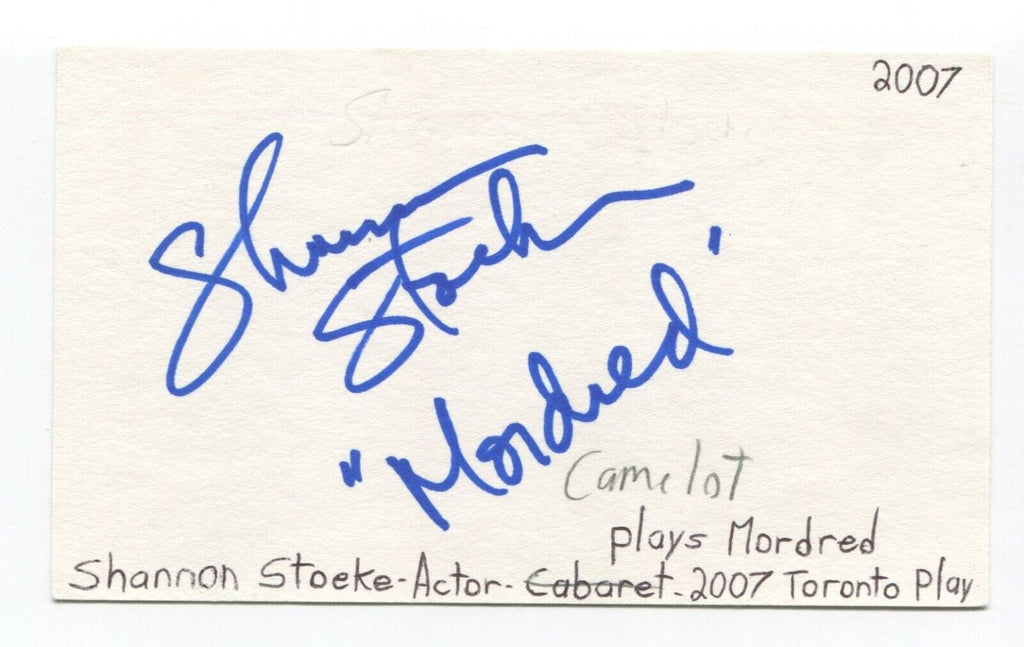 2007
Shannon
Stoeke
"Mordred"
Camelot
plays Mordred
Shannon Stoeke-Actor-Cabaret-2007 Toronto Play